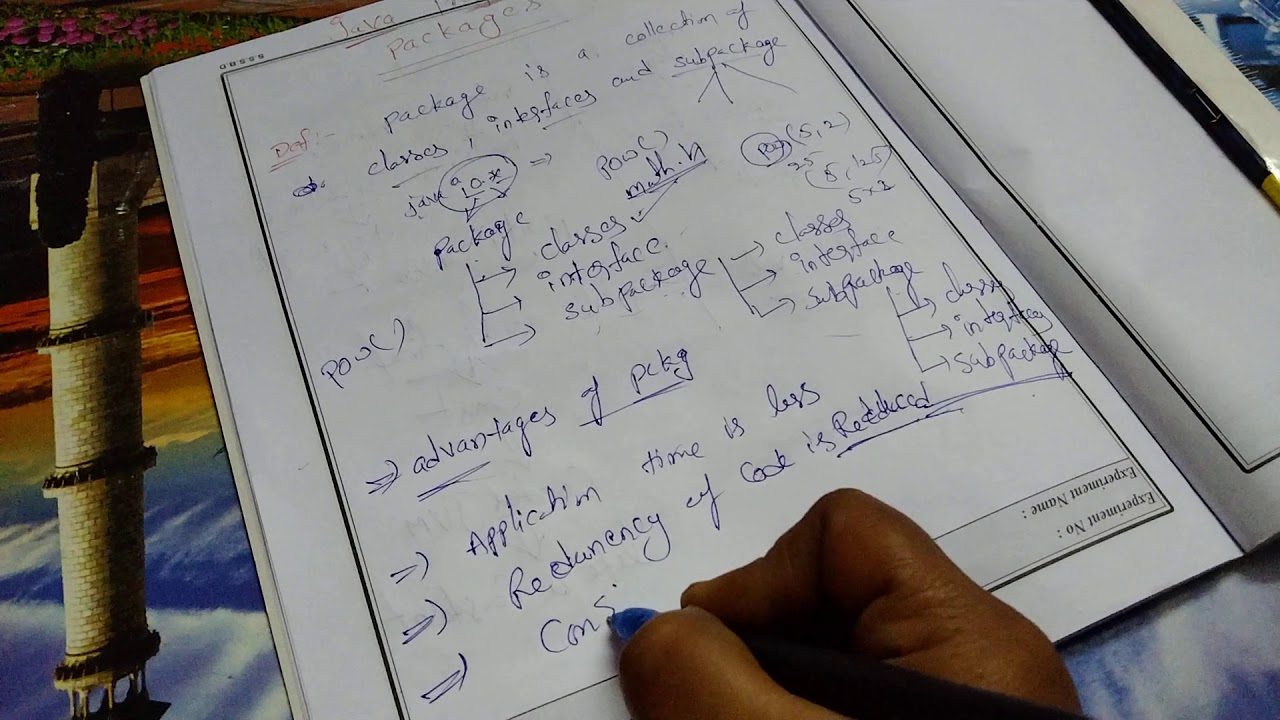 Java
packages
Def:- package is a collection of
classes, interfaces and subpackage
java.io.* => pow() pow(5,2)
math.h 25 (5,125)
5x2
package
classes
interface
subpackage
classes
interface
subpackage
classes
interfaces
subpackage
pow()
=> advantages of pckg
=> Application time is less
=> Redunency of Code is Reduced
=> Cons
Experiment No :
Experiment Name :